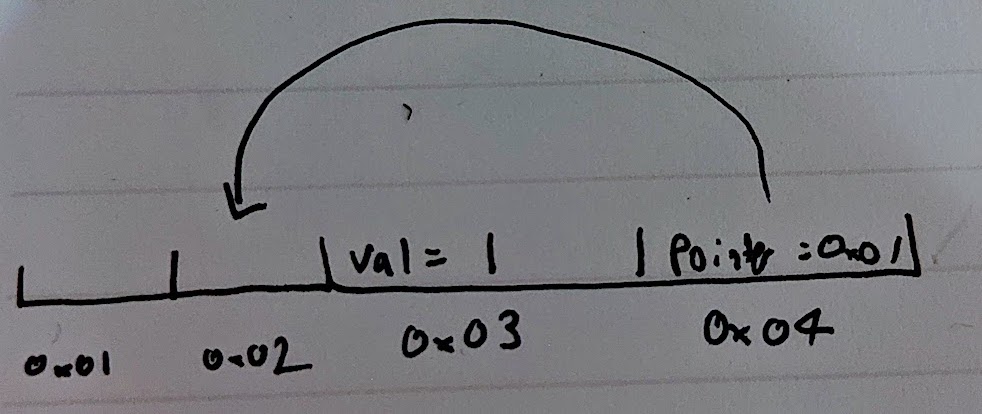 Val = 1 Pointer = 0x01
0x01 0x02 0x03 0x04